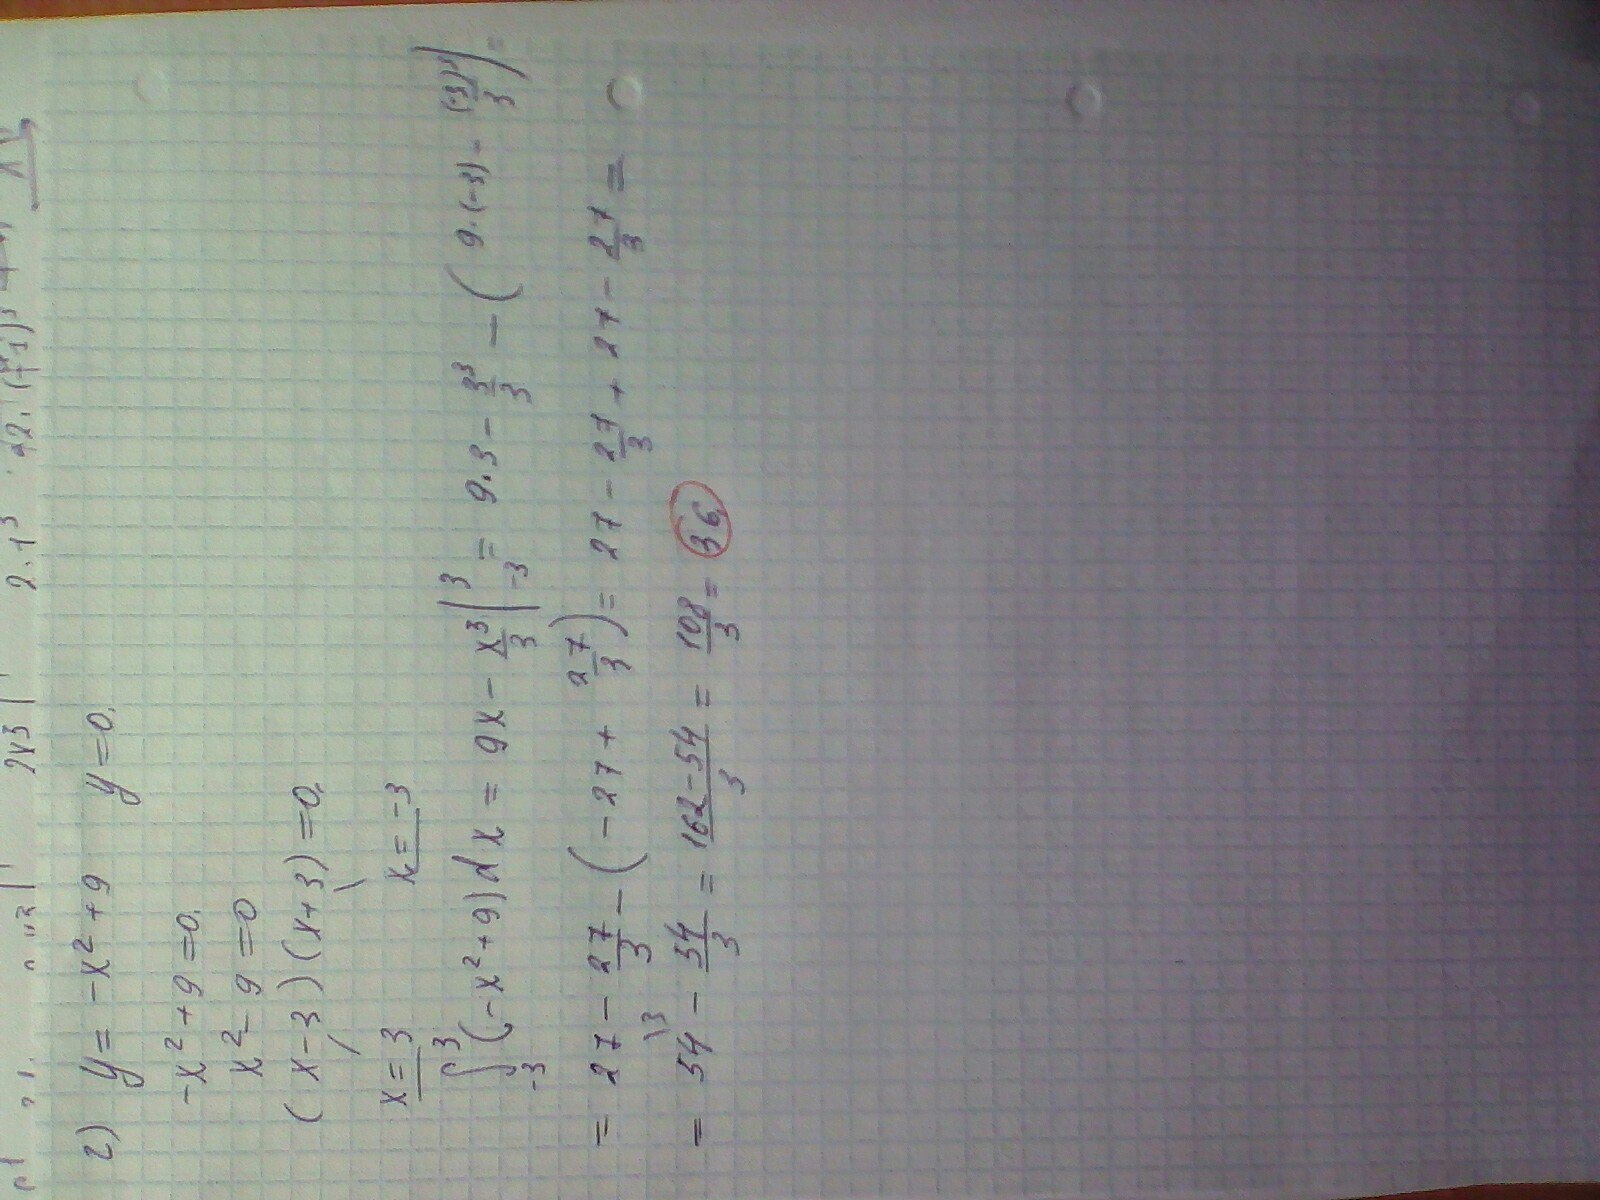 2) y = -x² + 9 y = 0.
-x² + 9 = 0.
x² - 9 = 0
(x - 3)(x + 3) = 0.
x = 3 x = -3
∫₋₃³ (-x² + 9)dx = 9x - x³/3 |₋₃³ = 9·3 - 3³/3 - (9·(-3) - (-3)³/3) =
= 27 - 27/3 - (-27 + 27/3) = 27 - 27/3 + 27 - 27/3 =
= 54\3 - 54/3 = 162-54/3 = 108/3 = 36.